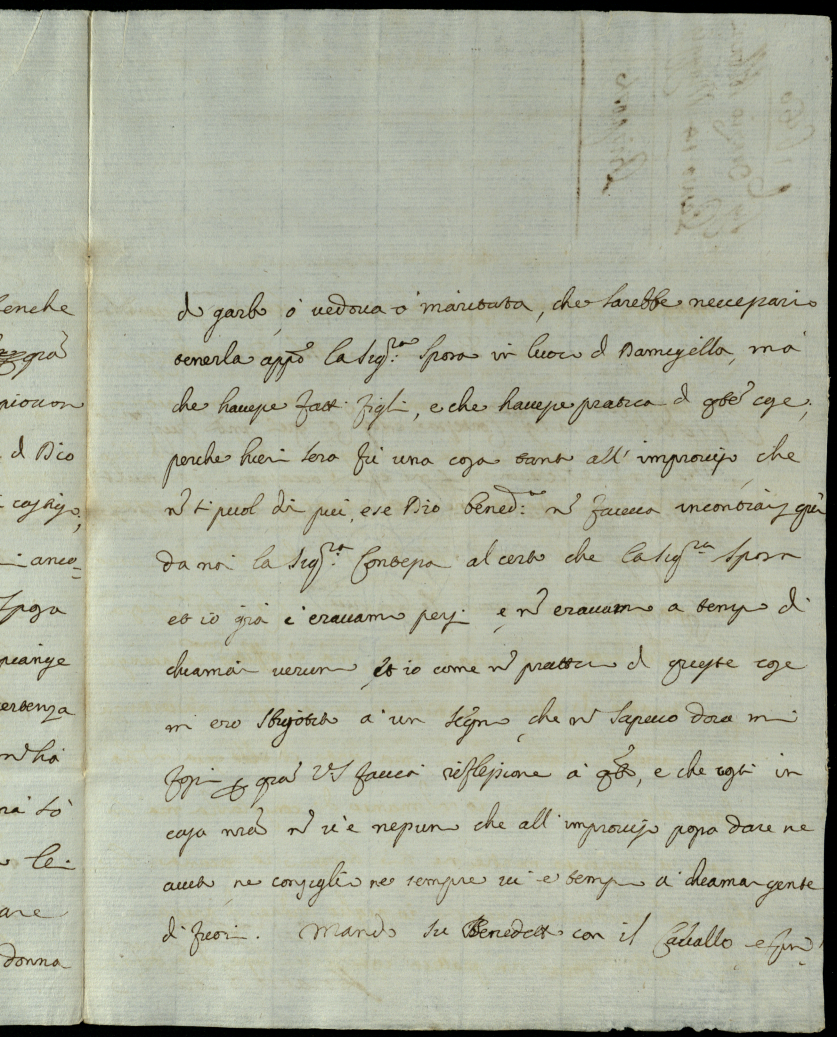 enche
gra
piouon
d Dio
castigo,
anco=
Sposa
piange
ertenza
n' ha
ra sò
le
are
donna
d garbo, ò uedoua ò maritata, che sarebbe neccessario
tenerla app.o la Sig.ra Sposa in luoco d Damigella, mà
che hauesse fatti figli, e che hauesse prattica d q.te cose,
perche hieri sera fù una cosa tanto all' improuiso che
n' si puol di più, e se Dio bened.o n' faceua incontrar qui
da noi la Sig.ra Contessa al certo che la Sig.ra Sposa
et io già c'erauamo persi, e n' erauamo a tempo di
chiamar ueruno et io come n' prattico d queste cose
mi ero sbigotito à un segno, che n' sapeuo doue mi
fossi gra VS facci riflessione à q.to, e che ogli in
casa nra n' u'è nessuno che all' improuiso possa dare ne
aiuto ne consiglio ne sempre ui è tempo di chiamar gente
di fuori. Mando su Benedetto con il Cauallo e